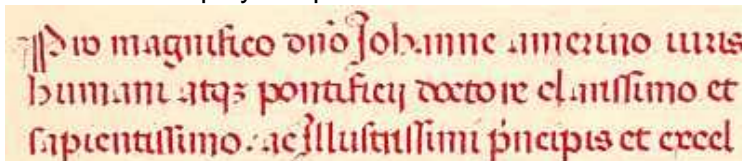 Pro magnifico dnō Johanne amerino iuris
humani atqꝫ pontificij doctore clarissimo et
sapientissimo. ac Illustrissimi pncipis et excel